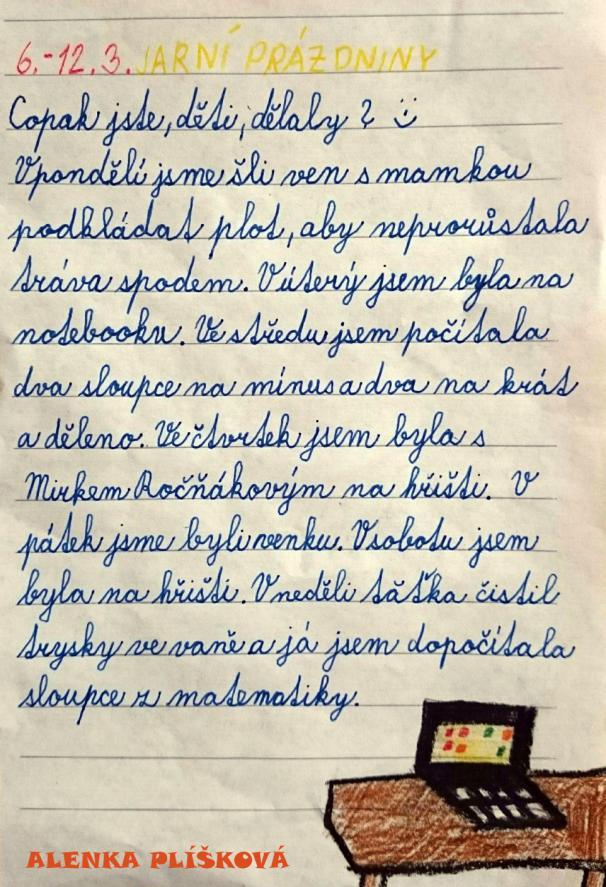 6.-12.3. JARNÍ PRÁZDNINY
Copak jste, děti, dělaly ? :)
V pondělí jsme šli ven s mamkou
podkládat plot, aby neprorůstala
tráva spodem. V úterý jsem byla na
notebooku. Ve středu jsem počítala
dva sloupce na mínus a dva na krát
a děleno. Ve čtvrtek jsem byla s
Mirkem Ročňákovým na hřišti. V
pátek jsme byli venku. V sobotu jsem
byla na hřišti. V neděli táťka čistil
trysky ve vaně a já jsem dopočítala
sloupce z matematiky.
ALENKA PLÍŠKOVÁ